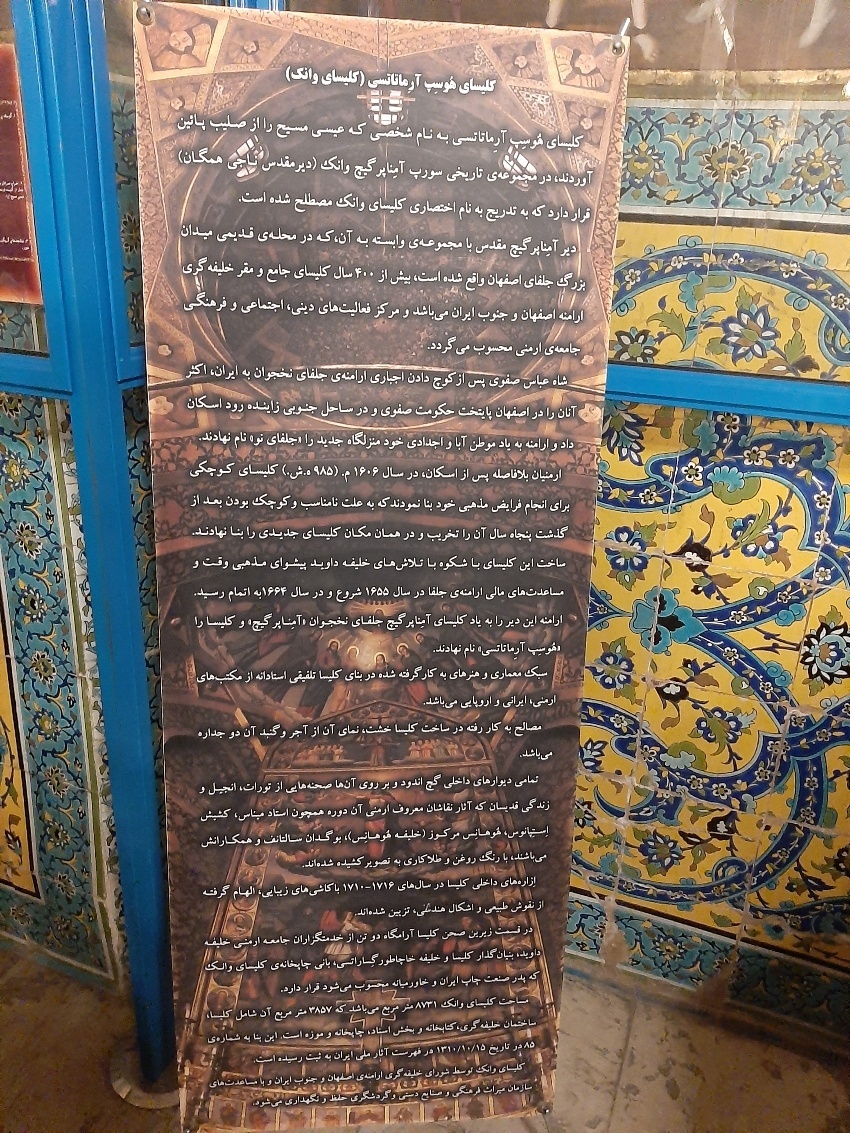 کلیسای هُوسِپ آرِماتاتسی (کلیسای وانک)
کلیسای هُوسِپ آرِماتاتسی به نام شخصی که عیسی مسیح را از صلیب پائین
آوردند، در مجموعه‌ی تاریخی سورپ آمِناپرگیچ وانک (دیرمقدس ناجی همگان)
قرار دارد که به تدریج به نام اختصاری کلیسای وانک مصطلح شده است.
دیر آمِناپرگیچ مقدس با مجموعه‌ی وابسته به آن،که در محله‌ی قدیمی میدان
بزرگ جلفای اصفهان واقع شده است، بیش از ۴۰۰ سال کلیسای جامع و مقر خلیفه‌گری
ارامنه اصفهان و جنوب ایران می‌باشد و مرکز فعالیت‌های دینی، اجتماعی و فرهنگی
جامعه‌ی ارمنی محسوب می‌گردد.
شاه عباس صفوی پس از کوچ دادن اجباری ارامنه‌ی جلفای نخجوان به ایران، اکثر
آنان را در اصفهان پایتخت حکومت صفوی و در ساحل جنوبی زاینده رود اسکان
داد و ارامنه به یاد موطن آبا و اجدادی خود منزلگاه جدید را «جلفای نو» نام نهادند.
ارمنیان بلافاصله پس از اسکان، در سال ۱۶۰۶ م. (۹۸۵ ه.ش.) کلیسای کوچکی
برای انجام فرایض مذهبی خود بنا نمودند که به علت نامناسب و کوچک بودن بعد از
گذشت پنجاه سال آن را تخریب و در همان مکان کلیسای جدیدی را بنا نهادند.
ساخت این کلیسای با شکوه با تلاش‌های خلیفه داوید پیشوای مذهبی وقت و
مساعدت‌های مالی ارامنه‌ی جلفا در سال ۱۶۵۵ شروع و در سال ۱۶۶۴به اتمام رسید.
ارامنه این دیر را به یاد کلیسای آمِناپرگیچ جلفای نخجوان «آمِناپرگیچ» و کلیسا را
«هُوسِپ آرِماتاتسی» نام نهادند.
سبک معماری و هنرهای به کارگرفته شده در بنای کلیسا تلفیقی استادانه از مکتب‌های
ارمنی، ایرانی و اروپایی می‌باشد.
مصالح به کار رفته در ساخت کلیسا خشت، نمای آن از آجر و گنبد آن دو جداره
می‌باشد.
تمامی دیوارهای داخلی گچ اندود و بر روی آن‌ها صحنه‌هایی از تورات، انجیل و
زندگی قدیسان که آثار نقاشان معروف ارمنی آن دوره همچون استاد میناس، کشیش
اِستپانوس، هُوهانِس مرکوز (خلیفه هُوهانِس)، بوگدان سالتانف و همکارانش
می‌باشند، با رنگ روغن و طلاکاری به تصویر کشیده شده‌اند.
اِزاره‌های داخلی کلیسا در سال‌های ۱۷۱۶-۱۷۱۰ با کاشی‌های زیبایی، الهام گرفته
از نقوش طبیعی و اشکال هندسی، تزیین شده‌اند.
در قسمت زیرین صحن کلیسا آرامگاه دو تن از خدمتگزاران جامعه ارمنی خلیفه
داوید، بنیان‌گذار کلیسا و خلیفه خاچاطور گِساراتسی، بانی چاپخانه‌ی کلیسای وانک
که پدر صنعت چاپ ایران و خاورمیانه محسوب می‌شود قرار دارد.
مساحت کلیسای وانک ۸۷۳۱ متر مربع می‌باشد که ۳۸۵۷ متر مربع آن شامل کلیسا،
ساختمان خلیفه‌گری، کتابخانه و بخش اسناد، چاپخانه و موزه است. این بنا به شماره‌ی
۸۵ در تاریخ ۱۳۱۰/۱۰/۱۵ در فهرست آثار ملی ایران به ثبت رسیده است.
کلیسای وانک توسط شورای خلیفه‌گری ارامنه‌ی اصفهان و جنوب ایران و با مساعدت‌های
سازمان میراث فرهنگی و صنایع دستی و گردشگری حفظ و نگهداری می‌شود.